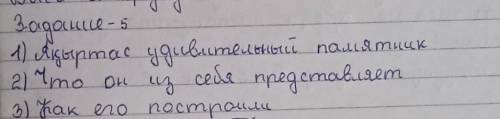 Задание-5
1) Ақыртас удивительный памятник
2) Что он из себя представляет
3) Как его построили